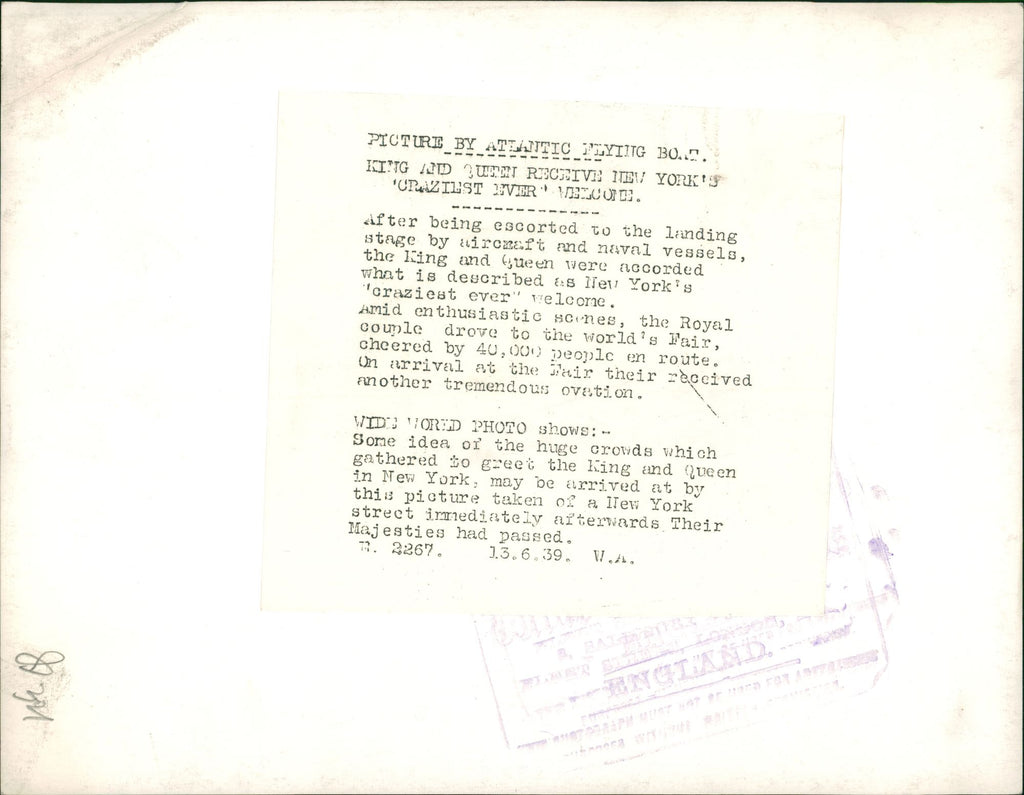 PICTURE BY ATLANTIC FLYING BOAT.
KING AND QUEEN RECEIVE NEW YORK'S
"CRAZIEST EVER" WELCOME.
After being escorted to the landing
stage by aircraft and naval vessels,
the King and Queen were accorded
what is described as New York's
"craziest ever" welcome.
Amid enthusiastic scenes, the Royal
couple drove to the world's Fair,
cheered by 40,000 people en route.
On arrival at the Fair their received
another tremendous ovation.
WIDE WORLD PHOTO shows:-
Some idea of the huge crowds which
gathered to greet the King and Queen
in New York, may be arrived at by
this picture taken of a New York
street immediately afterwards Their
Majesties had passed.
2267. 13.6.39. W.A.
LONDON,
ENGLAND.
PHOTOGRAPH MUST NOT BE USED FOR